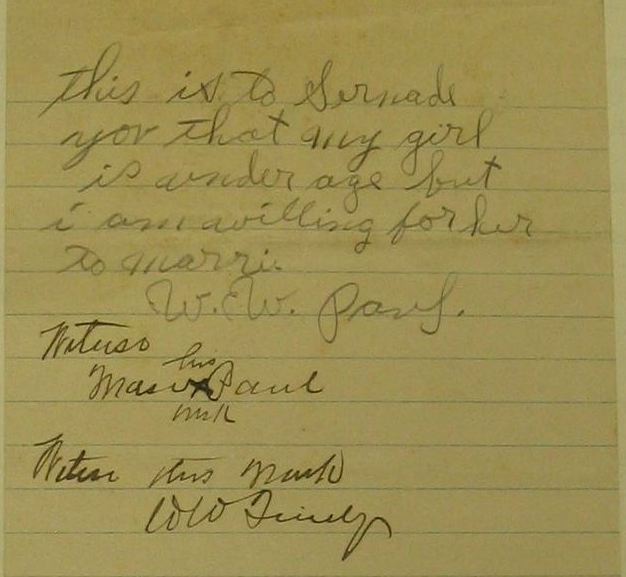 this is to Sernade
yor that my girl
is under age but
i am willing for her
to marri.
W. W. Paul.
Witness
his
Paul
mark
Witness this mark
W W